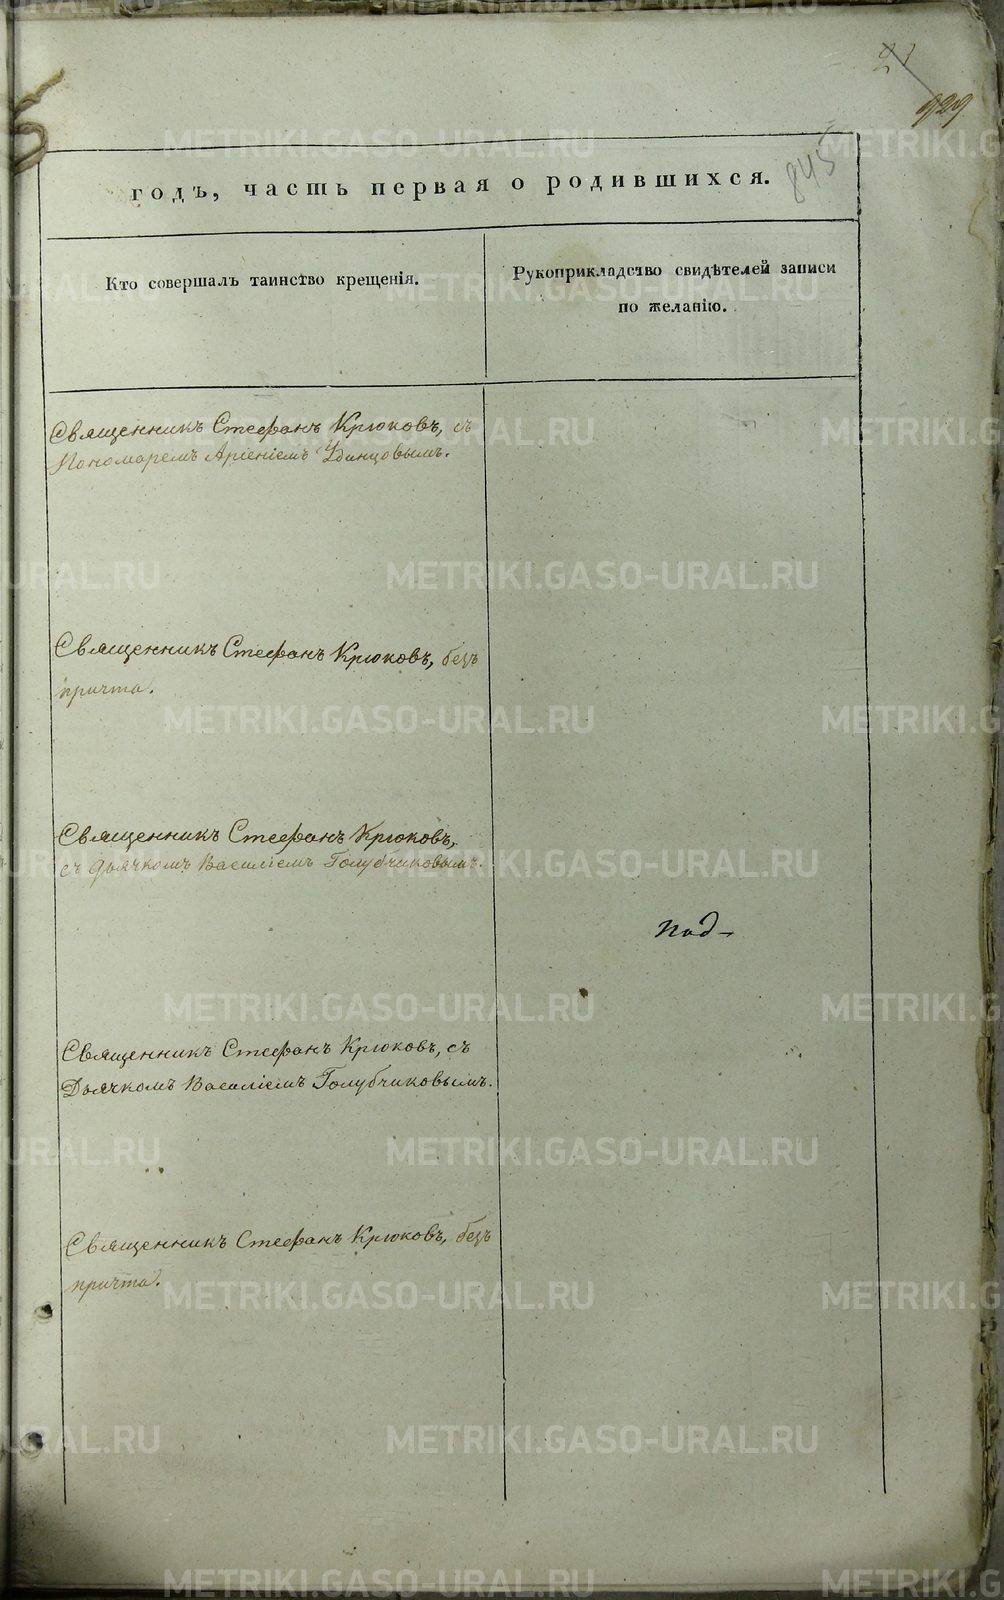 21
929
845
годъ, часть первая о родившихся.
Кто совершалъ таинство крещенія.
Рукоприкладство свидѣтелей записи
по желанію.
Священникъ Стефанъ Крюковъ, съ
Пономаремъ Арсеніемъ Удинцовымъ.
Священникъ Стефанъ Крюковъ, безъ
причта.
Священникъ Стефанъ Крюковъ,
съ Дьячкомъ Василіемъ Голубчиковымъ.
Под-
Священникъ Стефанъ Крюковъ, съ
Дьячкомъ Василіемъ Голубчиковымъ.
Священникъ Стефанъ Крюковъ, безъ
причта.
METRIKI.GASO-URAL.RU